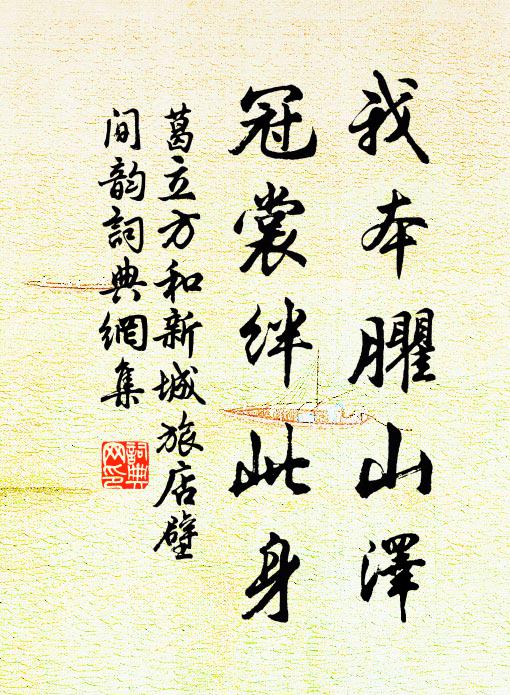 我本臞山澤
冠裳絆此身
葛立方和新城旅店壁
间韵詞典網集
詞典
网印